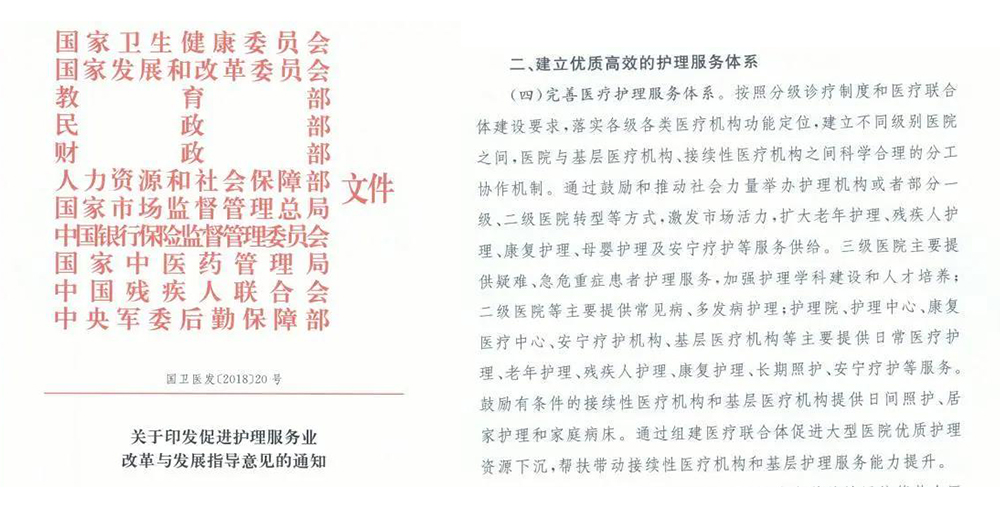 国家卫生健康委员会
国家发展和改革委员会
教育部
民政部
财政部
人力资源和社会保障部
国家市场监督管理总局
中国银行保险监督管理委员会
国家中医药管理局
中国残疾人联合会
中央军委后勤保障部
文件
国卫医发〔2018〕20号
关于印发促进护理服务业
改革与发展指导意见的通知
二、建立优质高效的护理服务体系
(四)完善医疗护理服务体系。按照分级诊疗制度和医疗联合
体建设要求,落实各级各类医疗机构功能定位,建立不同级别医院
之间,医院与基层医疗机构、接续性医疗机构之间科学合理的分工
协作机制。通过鼓励和推动社会力量举办护理机构或者部分一
级、二级医院转型等方式,激发市场活力,扩大老年护理、残疾人护
理、康复护理、母婴护理及安宁疗护等服务供给。三级医院主要提
供疑难、急危重症患者护理服务,加强护理学科建设和人才培养;
二级医院等主要提供常见病、多发病护理;护理院、护理中心、康复
医疗中心、安宁疗护机构、基层医疗机构等主要提供日常医疗护
理、老年护理、残疾人护理、康复护理、长期照护、安宁疗护等服务。
鼓励有条件的接续性医疗机构和基层医疗机构提供日间照护、居
家护理和家庭病床。通过组建医疗联合体促进大型医院优质护理
资源下沉,帮扶带动接续性医疗机构和基层护理服务能力提升。